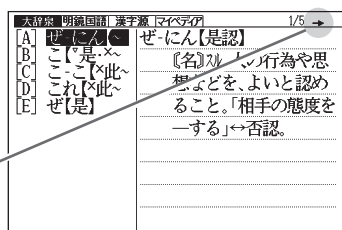 大辞泉 明鏡国語 漢字源 マイペディア 1/5 →
[A] ぜ-にん【~
[B] こ【▽是・×~
[C] こ-こ【×此~
[D] これ【×此~
[E] ぜ【是】
ぜ-にん【是認】
〘名〙スル の行為や思
想などを、よいと認め
ること。「相手の態度を
―する」↔否認。